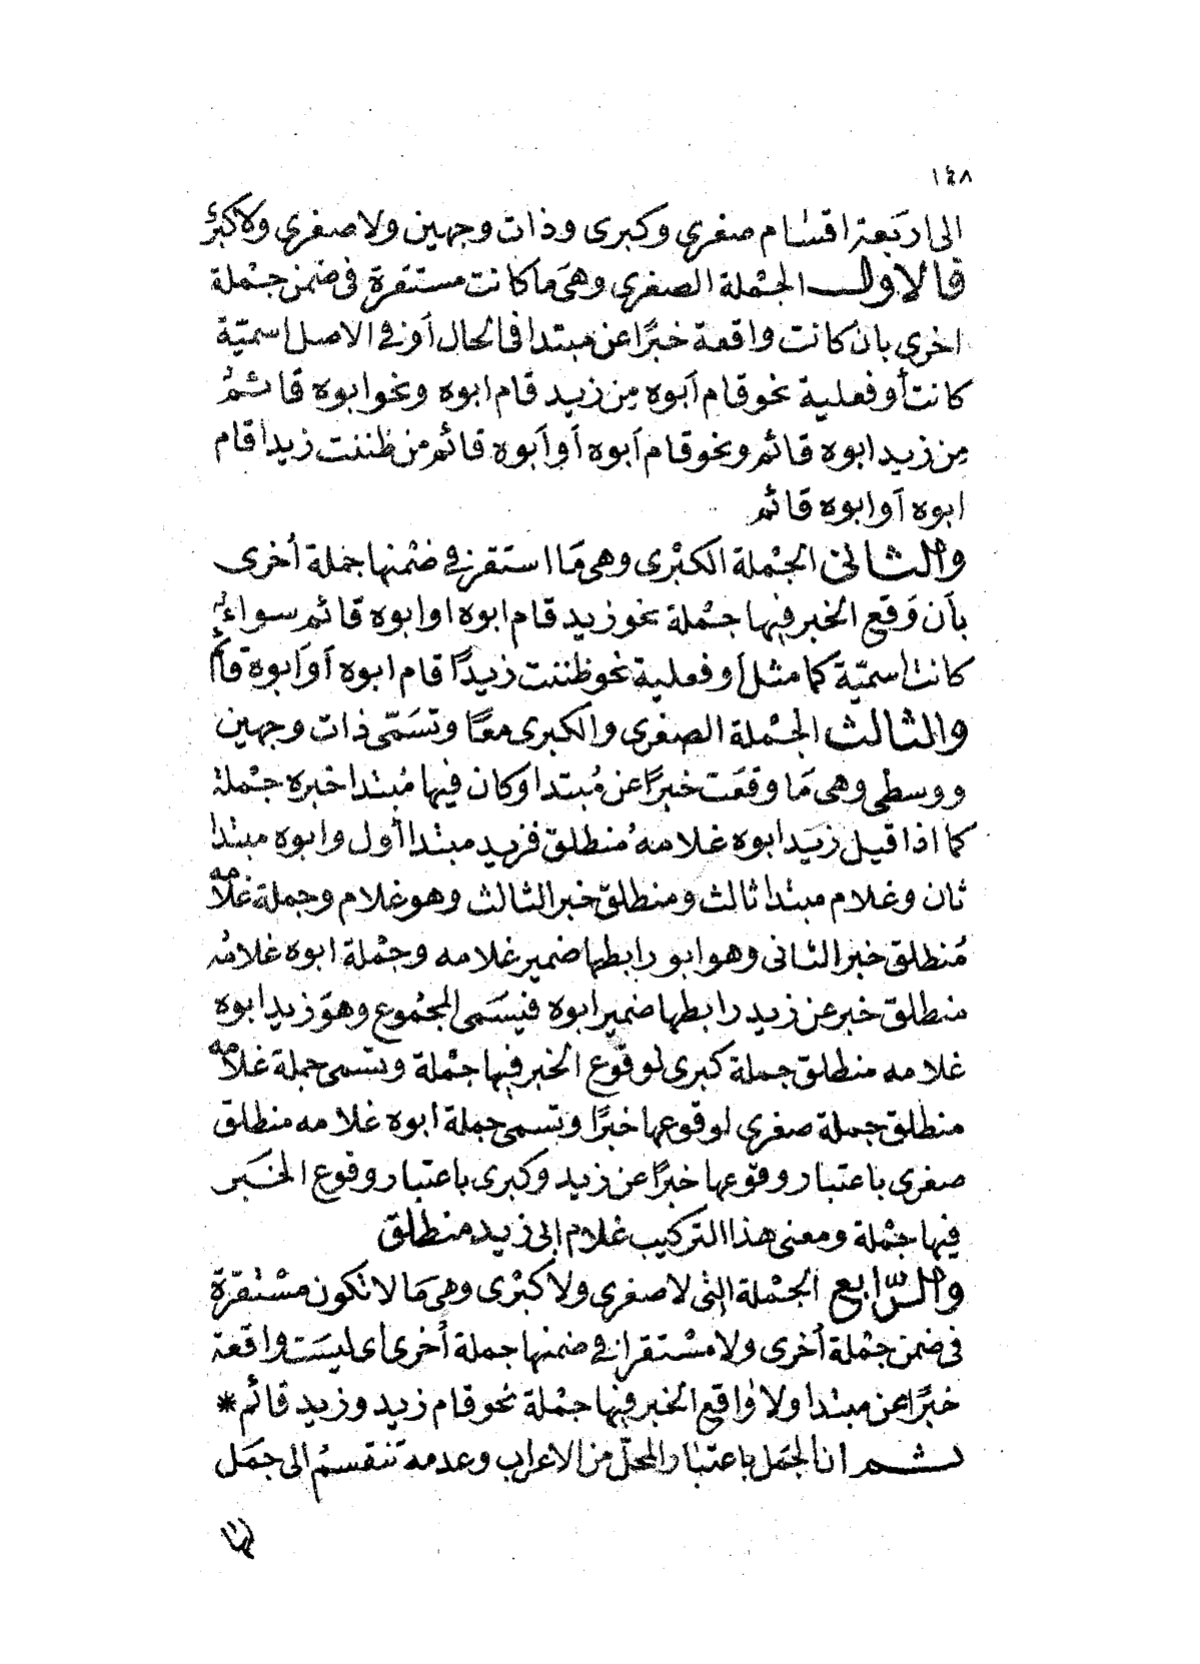 ١٤٨
الى اربَعة اقسَام صغرى وكبرى وذات وجهين ولا صغرى ولا كبرى
فالاول الجمْلة الصغرى وهىَ ما كانت مستقرة فى ضمن جمْلة
اخرى بان كانت واقعة خبرًا عن مبتدا فى الحال أو فى الاصل اسميّة
كانت أو فعلية نحو قام أبوه مِن زيد قام ابوه ونحو ابوه قائمُ
مِن زيد ابوه قائم ونحو قام أبوه أو أبوه قائم من ظننت زيدا قام
ابوه أو ابوه قائم
والثانى الجمْلة الكبْرى وهى مَا استَقر فى ضمْنها جملة أخرى
بأن وَقع الخبر فيها جمْلة نحو زيد قام ابوه او ابوه قائم سواءٌ
كانت اسميّة كما مثل أو فعلية نحو ظننت زيدًا قام ابوه أو أبوه قائم
والثالث الجمْلة الصغرى والكبرى معًا وتسَمّى ذات وجهين
ووسطى وهى مَا وقعَت خبرًا عن مُبتدا وكان فيها مُبتدا خبره جمْلة
كما اذا قيل زيَد ابوه غلامهُ مُنطلق فزيد مبتدا أول وابوه مبتدا
ثان وغلام مبتدا ثالث ومنطلق خبر الثالث وهو غلام وجملة غلامه
مُنطلق خبر الثانى وهو ابو رابطها ضمير غلامه وجمْلة ابوه غلامُه
منطلق خبر عن زيد رابطها ضمير ابوه فيسَمى المجمُوع وهوَ زيد ابوه
غلامه منطلق جملة كبرى لوقوع الخبر فيها جمْلة وتسمى جملة غلامه
منطلق جملة صغرى لوقوعها خبرًا وتسمى جملة ابوه غلامه منطلق
صغرى باعتبار وقوعها خبرًا عن زيد وكبرى باعتبار وقوع الخبَر
فيها جمْلة ومعنى هذا التركيب غلام ابى زيد منطلق
والرّابع الجمْلة التى لا صغرى ولا كبْرى وهىَ مَا لا تكون مسْتقرّة
فى ضمن جمْلة أخرى ولا مسْتقرا فى ضمنها جملة أخرى اى ليسَت واقعة
خبرًا عن مبتدا ولا واقع الخبر فيها جمْلة نحو قام زيد وزيد قائم *
ثم ان الجمَل باعتبَار المحلّ من الاعراب وعدمه تنقسمُ الى جمَل